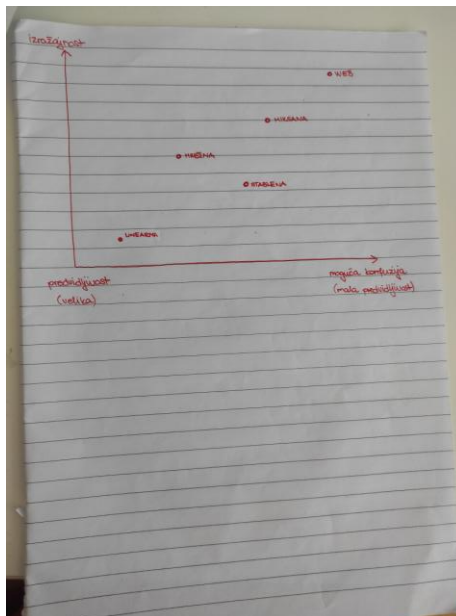 izražajnost
WEB
MIKSANA
MREŽNA
STABLENA
LINEARNA
predvidljivost
(velika)
moguća konfuzija
(mala predvidljivost)